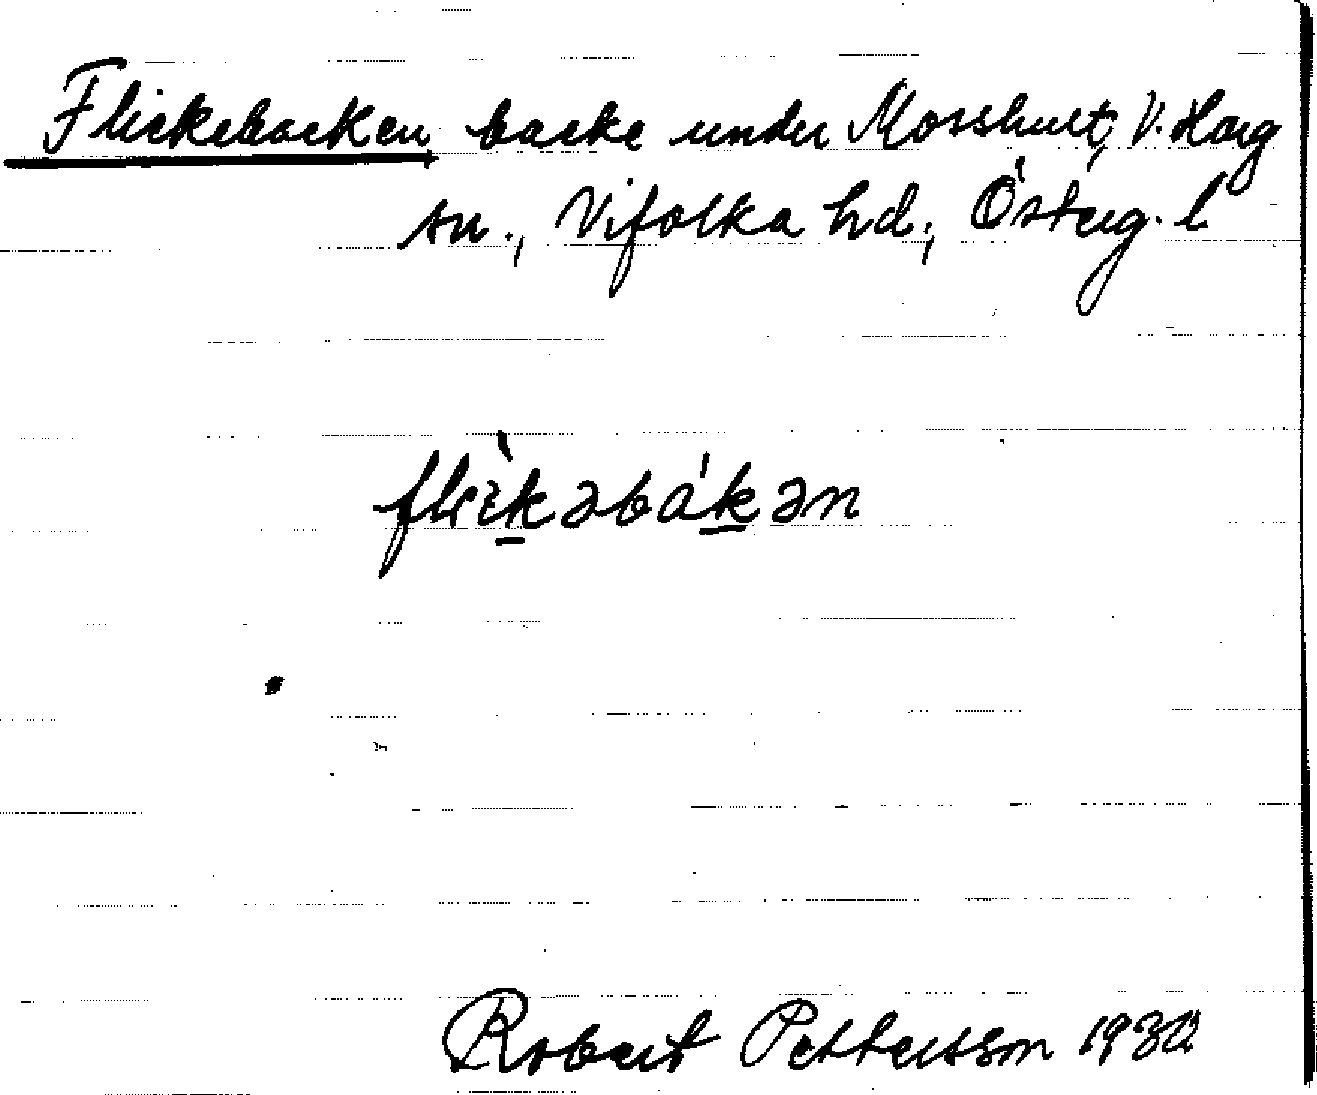 Flickebacken backe under Mosshult, V. Harg
sn., Vifolka hd., Österg. l
flìkəbákən
Robert Pettersson 1930